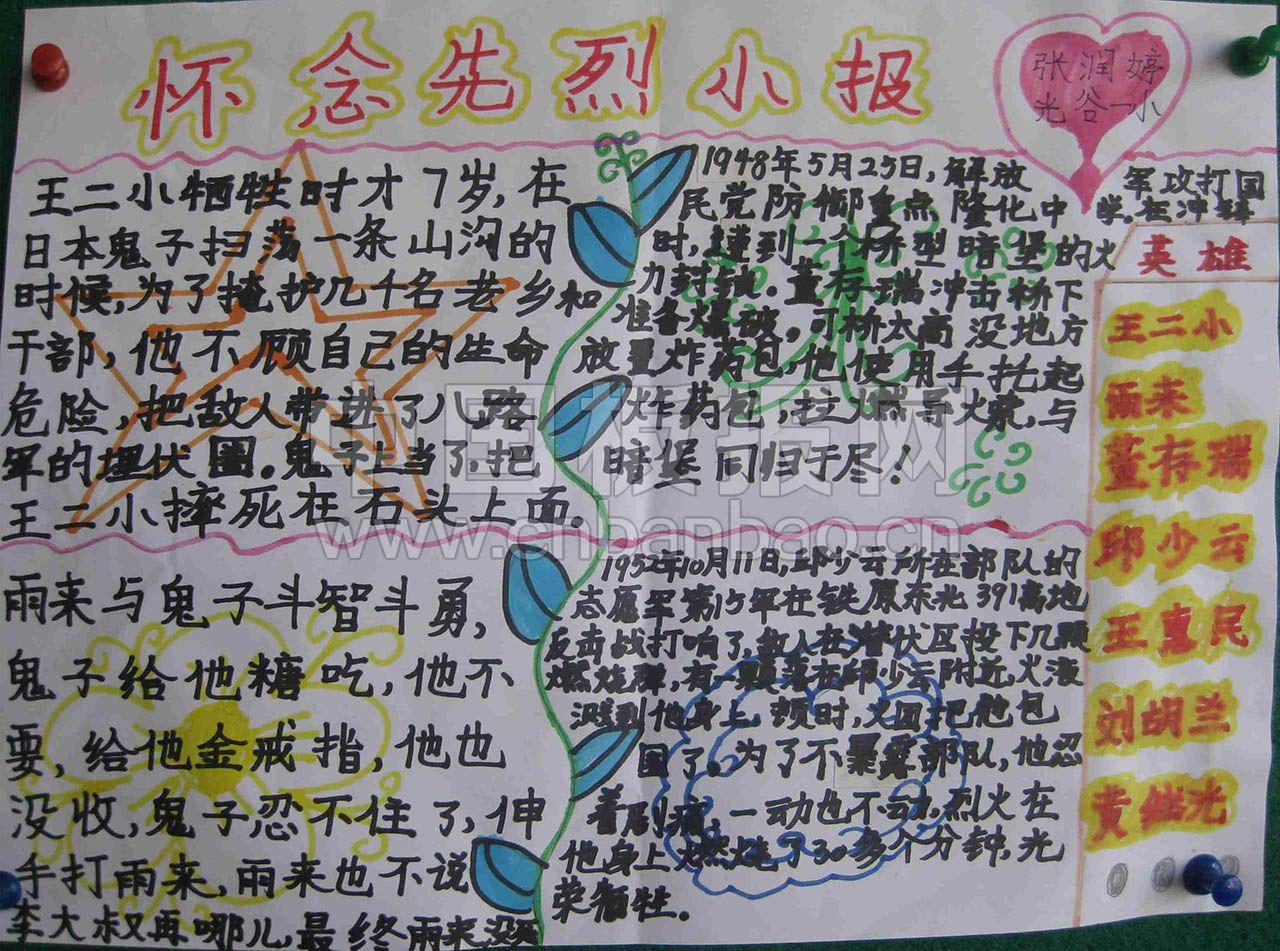 怀念先烈小报
张润婷
光谷一小
王二小牺牲时才7岁,在
日本鬼子扫荡一条山沟的
时候,为了掩护几千名老乡和
干部,他不顾自己的生命
危险,把敌人带进了八路
军的埋伏圈。鬼子上当了,把
王二小摔死在石头上面.
1948年5月25日,解放军攻打国
民党防御重点隆化中学.在冲锋
时,遭到一个桥型暗堡的火
力封锁.董存瑞冲击桥下
准备爆破。可桥太高没地方
放置炸药包,他使用手托起
炸药包,拉火燃导火索,与
暗堡同归于尽!
雨来与鬼子斗智斗勇,
鬼子给他糖吃,他不
要,给他金戒指,他也
没收,鬼子忍不住了,伸
手打雨来,雨来也不说
李大叔再哪儿,最终雨来没死
1952年10月11日,邱少云所在部队的
志愿军第15军在铁原东北391高地
反击战打响了,敌人在潜伏区投下几颗
燃烧弹,有一颗落在邱少云附近,火液
溅到他身上,顿时,火团把他包
围了,为了不暴露部队,他忍
着剧痛,一动也不动,烈火在
他身上燃烧了30多个分钟,光
荣牺牲.
英雄
王二小
雨来
董存瑞
邱少云
王惠民
刘胡兰
黄继光
中国板报网
www.chbanbao.cn